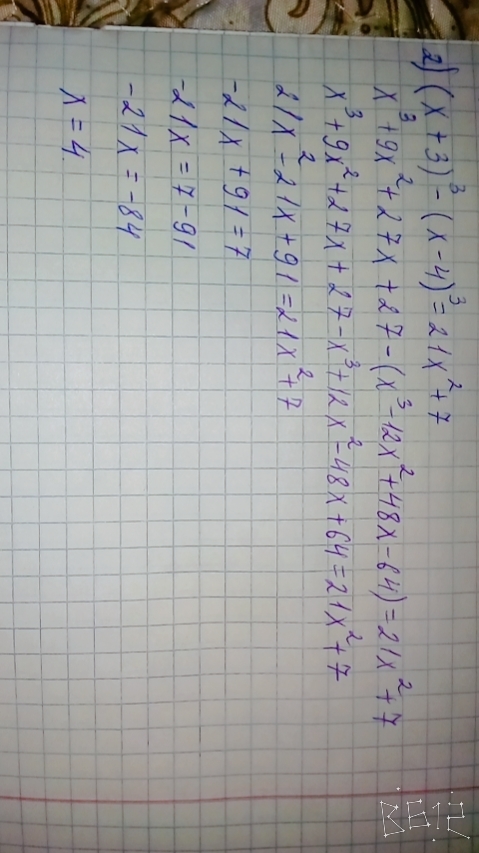 2) (x+3)³ - (x-4)³ = 21x² + 7
x³ + 9x² + 27x + 27 - (x³ - 12x² + 48x - 64) = 21x² + 7
x³ + 9x² + 27x + 27 - x³ + 12x² - 48x + 64 = 21x² + 7
21x² - 21x + 91 = 21x² + 7
-21x + 91 = 7
-21x = 7 - 91
-21x = -84
x = 4